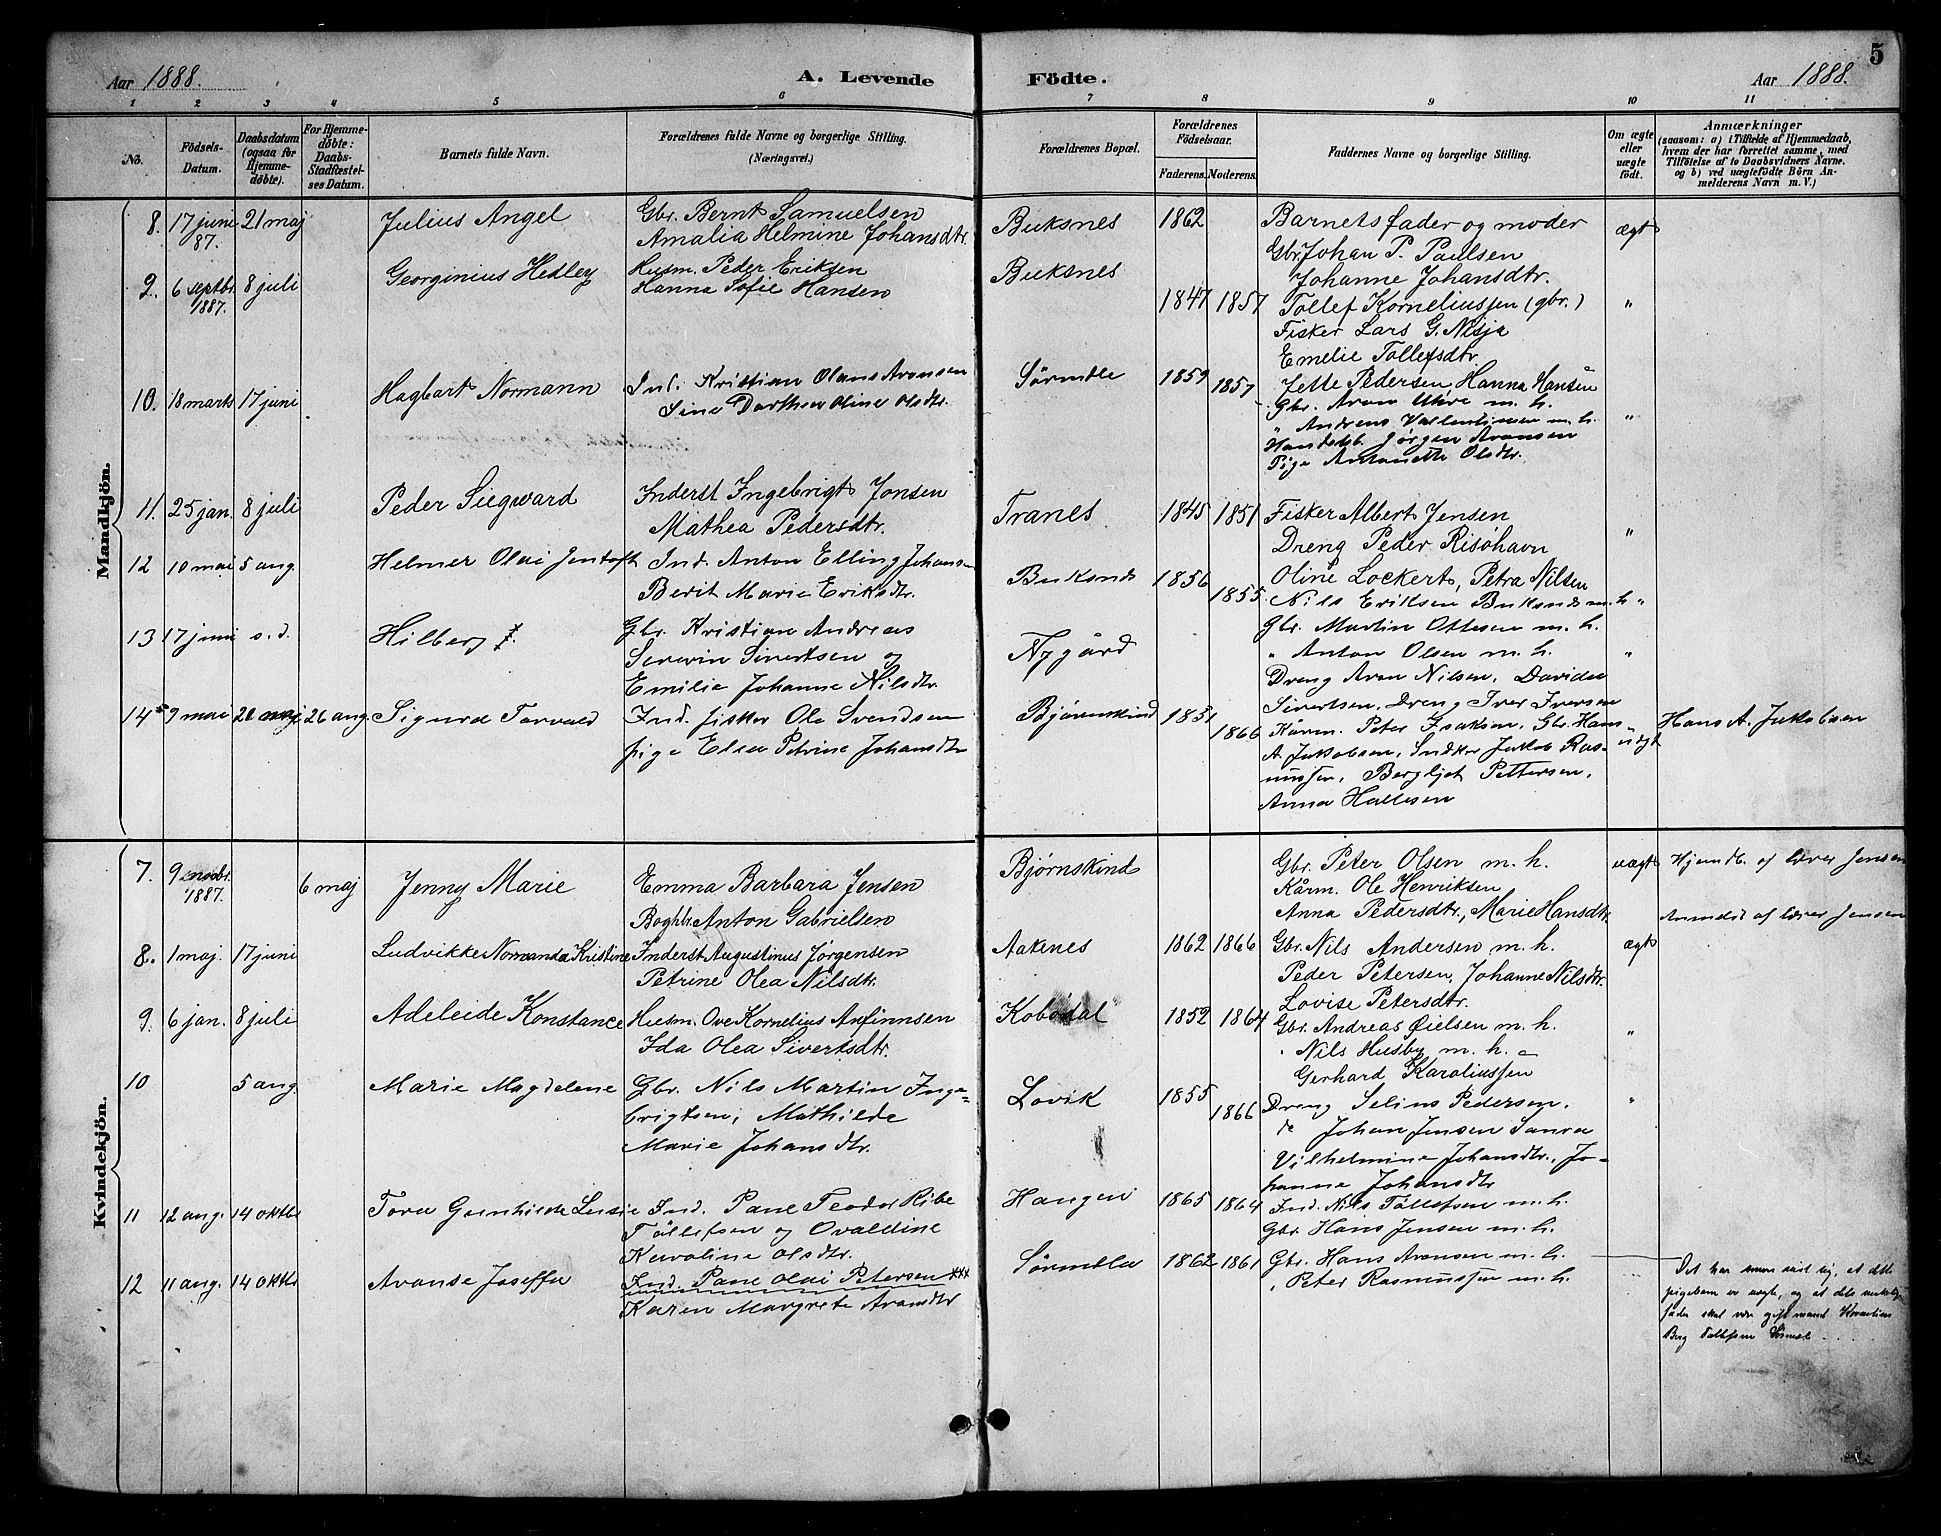 5
Aar 1888. A. Levende Födte. Aar 1888.
1 2 3 4 5 6 7 8 9 10 11
No. Födsels-Datum. Daabsdatum (ogsaa for Hjemmedøbte). For Hjemmedøbte: Daabs-Stadfæstelses Datum. Barnets fulde Navn. Forældrenes fulde Navne og borgerlige Stilling. (Næringsvei.) Forældrenes Bopæl. Forældrenes Födselsaar. Faderens. Moderens. Faddernes Navne og borgerlige Stilling. Om ægte eller uægte født. Anmærkninger (saasom: a) i Tilfælde af Hjemmedaab, hvem der har forrettet samme, med Tilföielse af to Daabsvidners Navne. og b) ved uægtefödte Börn Anmelderens Navn m. V.)
Mandkjön.
8. 17 juni 87. 21 maj Julius Angel Gbr. Bernt Samuelsen Buksnes 1862 Barnets fader og moder ægt
Amalia Helmine Johansdtr. Gbr. Johan P. Paulsen
Johanne Johansdtr.
9. 6 septbr. 1887. 8 juli Georginius Hedley Husm. Peder Eriksen Buksnes
Hanna Sofie Hansen 1847 1857 Tollef Korneliussen (gbr.) "
Fisker Lars G. Nisja
Emelie Tollefsdtr
10. 18 marts 17 juni Hagbart Normann Ind. Kristian Olaus Aronsen Sørmela 1859 1857 Jette Pedersen, Hanna Hansen
Sine Dorthea Oline Olsdtr. Gbr. Aron m. h.
" Andreas Valentinsen m. h. "
Handelsb. Jørgen Aronsen
Pige Antonette Olsdtr.
11. 25 jan. 8 juli Peder Siegward Inderst Ingebrigt Jonsen Tranes 1845 1851 Fisker Albert Jensen
Mathea Pedersdtr. Dreng Peder Risøhavn "
Oline Lockert, Petra Nilsen
12 10 mai 5 aug. Helmer Olai Jentoft Ind. Anton Elling Johans- Buksnes 1856
Berit Marie Eriksdtr. 1855 Nils Eriksen Buksnes m. h "
13 17 juni s. d. Hilberg Gbr. Kristian Andreas Nygård Gbr. Martin Ottesen m. h.
Severin Sivertsen og " Anton Olsen m. h. "
Emilie Johanne Nilsdtr. Dreng Aron Nilsen, Davida
Sivertsen, Dreng Iver Iversen
14 9 mai 20 maj 26 aug. Sigurd Torvald Ind. fisker Ole Svendsen Bjørnskind 1851 1866 Kårm. Peter Isaksen, Gbr. Hans uægt Hans A. Jakobsen
pige Elsa Petrine Johansdtr A. Jakobsen, Jakob Ras-
mussen, Bergljot Pettersen,
Anna Hallesen
Kvindekjön.
7. 9 novbr. 1887. 6 maj Jenny Marie Emma Barbara Jensen Bjørnskind Gbr. Peter Olsen m. h. uægt Hjemdb. af lærer Jensen
Kårm. Ole Henriksen
Boghbr. Anton Gabrielsen Anna Pedersdtr., Marie Hansdtr. Anmeldt af lærer Jensen
8. 1 maj. 17 juni Ludvikke Normanda Kristine Inderst Augustinus Jørgensen Aaknes 1862 1866 Gbr. Nils Andersen m. h. ægt
Petrine Olea Nilsdtr. Peder Petersen, Johanne Nilsdtr.
Lovise Petersdtr.
9. 6 jan. 8 juli Adeleide Konstance Husm. Ove Kornelius Anfinnsen Kobødal 1852 1864 Gbr. Andreas Øielsen m. h.
Ida Olea Sivertsdtr. " Nils Husby m. h. "
Gerhard Karoliussen
10 5 aug. Marie Magdelene Gbr. Nils Martin Inge- Lovik 1855 1866 Dreng Selius Pedersen, "
brigtsen, Mathilde Johan Jensen
Marie Johansdtr. Vilhelmine Johansdtr., Jo-
hanne Johansdtr
11 12 aug. 14 oktbr Tora Gunhilde Lusie Ind. Pane Teodor Ribe Haugen 1865 1864 Ind. Nils Tollefsen m. h.
Tollefsen og Ovaldine Gbr. Hans Jensen m. h.
Karoline Olsdtr.
12 11 aug. 14 oktbr Aranse Joseffa Ind. Pane Olai Petersen *** Sørmela 1862 1861 Gbr. Hans Aronsen m. h.
Karen Margrete Aronsdtr " Peter Rasmussen m. h.
Det har senere vist sig, at dette
pigebarn er uægte, og at dets virkelige
fader skal være gift mand Kornelius
Berg Tollefsen Sørmela